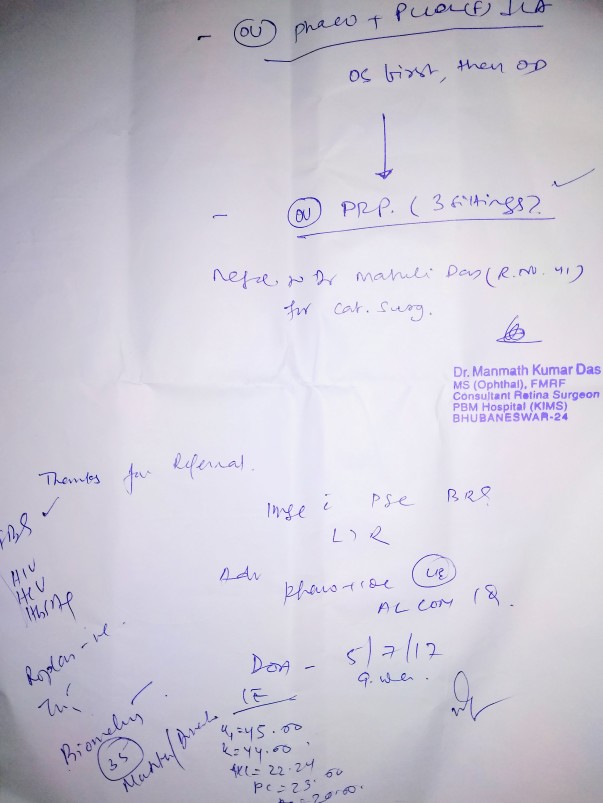 - OU phaco + PCIOL(F) LA
OS first, then OD
- OU PRP. ( 3 sittings).
Refd. to Dr Matuli Das (R.No. 41)
for Cat. Surg.
Dr. Manmath Kumar Das
MS (Ophthal), FMRF
Consultant Retina Surgeon
PBM Hospital (KIMS)
BHUBANESWAR-24
Thanks for Referral.
FBS
IMSC PSC BE
L > R
HIV
HCV
HbsAg
Adv phaco + IOL LE
ALCON IQ.
Ropdas -ve.
DOA - 5/7/17
LE
Biometry
35
K1=45.00
K=44.00
AXL= 22.24
PC = 23.00